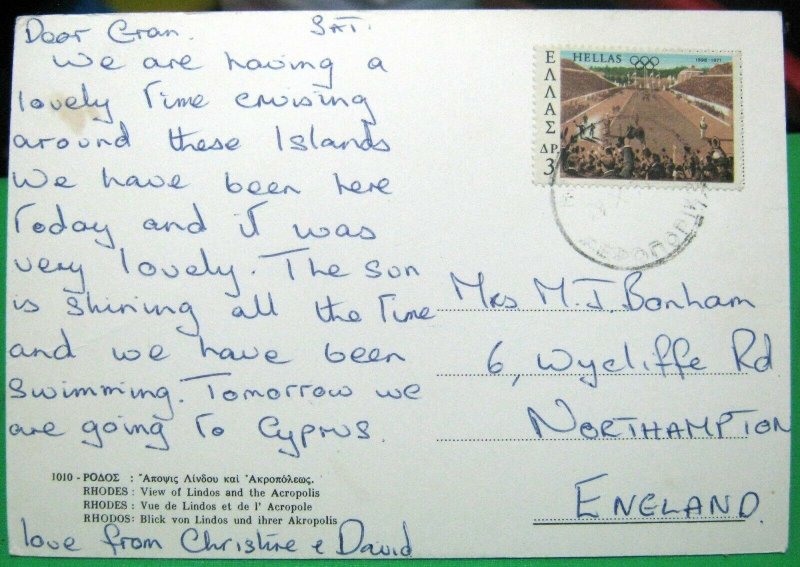 Dear Gran. SAT.
We are having a
lovely Time cruising
around these Islands
We have been here
Today and iT was
very lovely. The sun
is shining all the Time
and we have been
swimming. Tomorrow we
are going To Cyprus.
love from Christine & David
1010 - ΡΟΔΟΣ : Ἄποψις Λίνδου καὶ Ἀκροπόλεως.
RHODES : View of Lindos and the Acropolis
RHODES : Vue de Lindos et de l' Acropole
RHODOS: Blick von Lindos und ihrer Akropolis
HELLAS 1896-1971
ΕΛΛΑΣ
ΔΡ.
3
Mrs M.J. Bonham
6, Wycliffe Rd
NORTHAMPTON
ENGLAND.